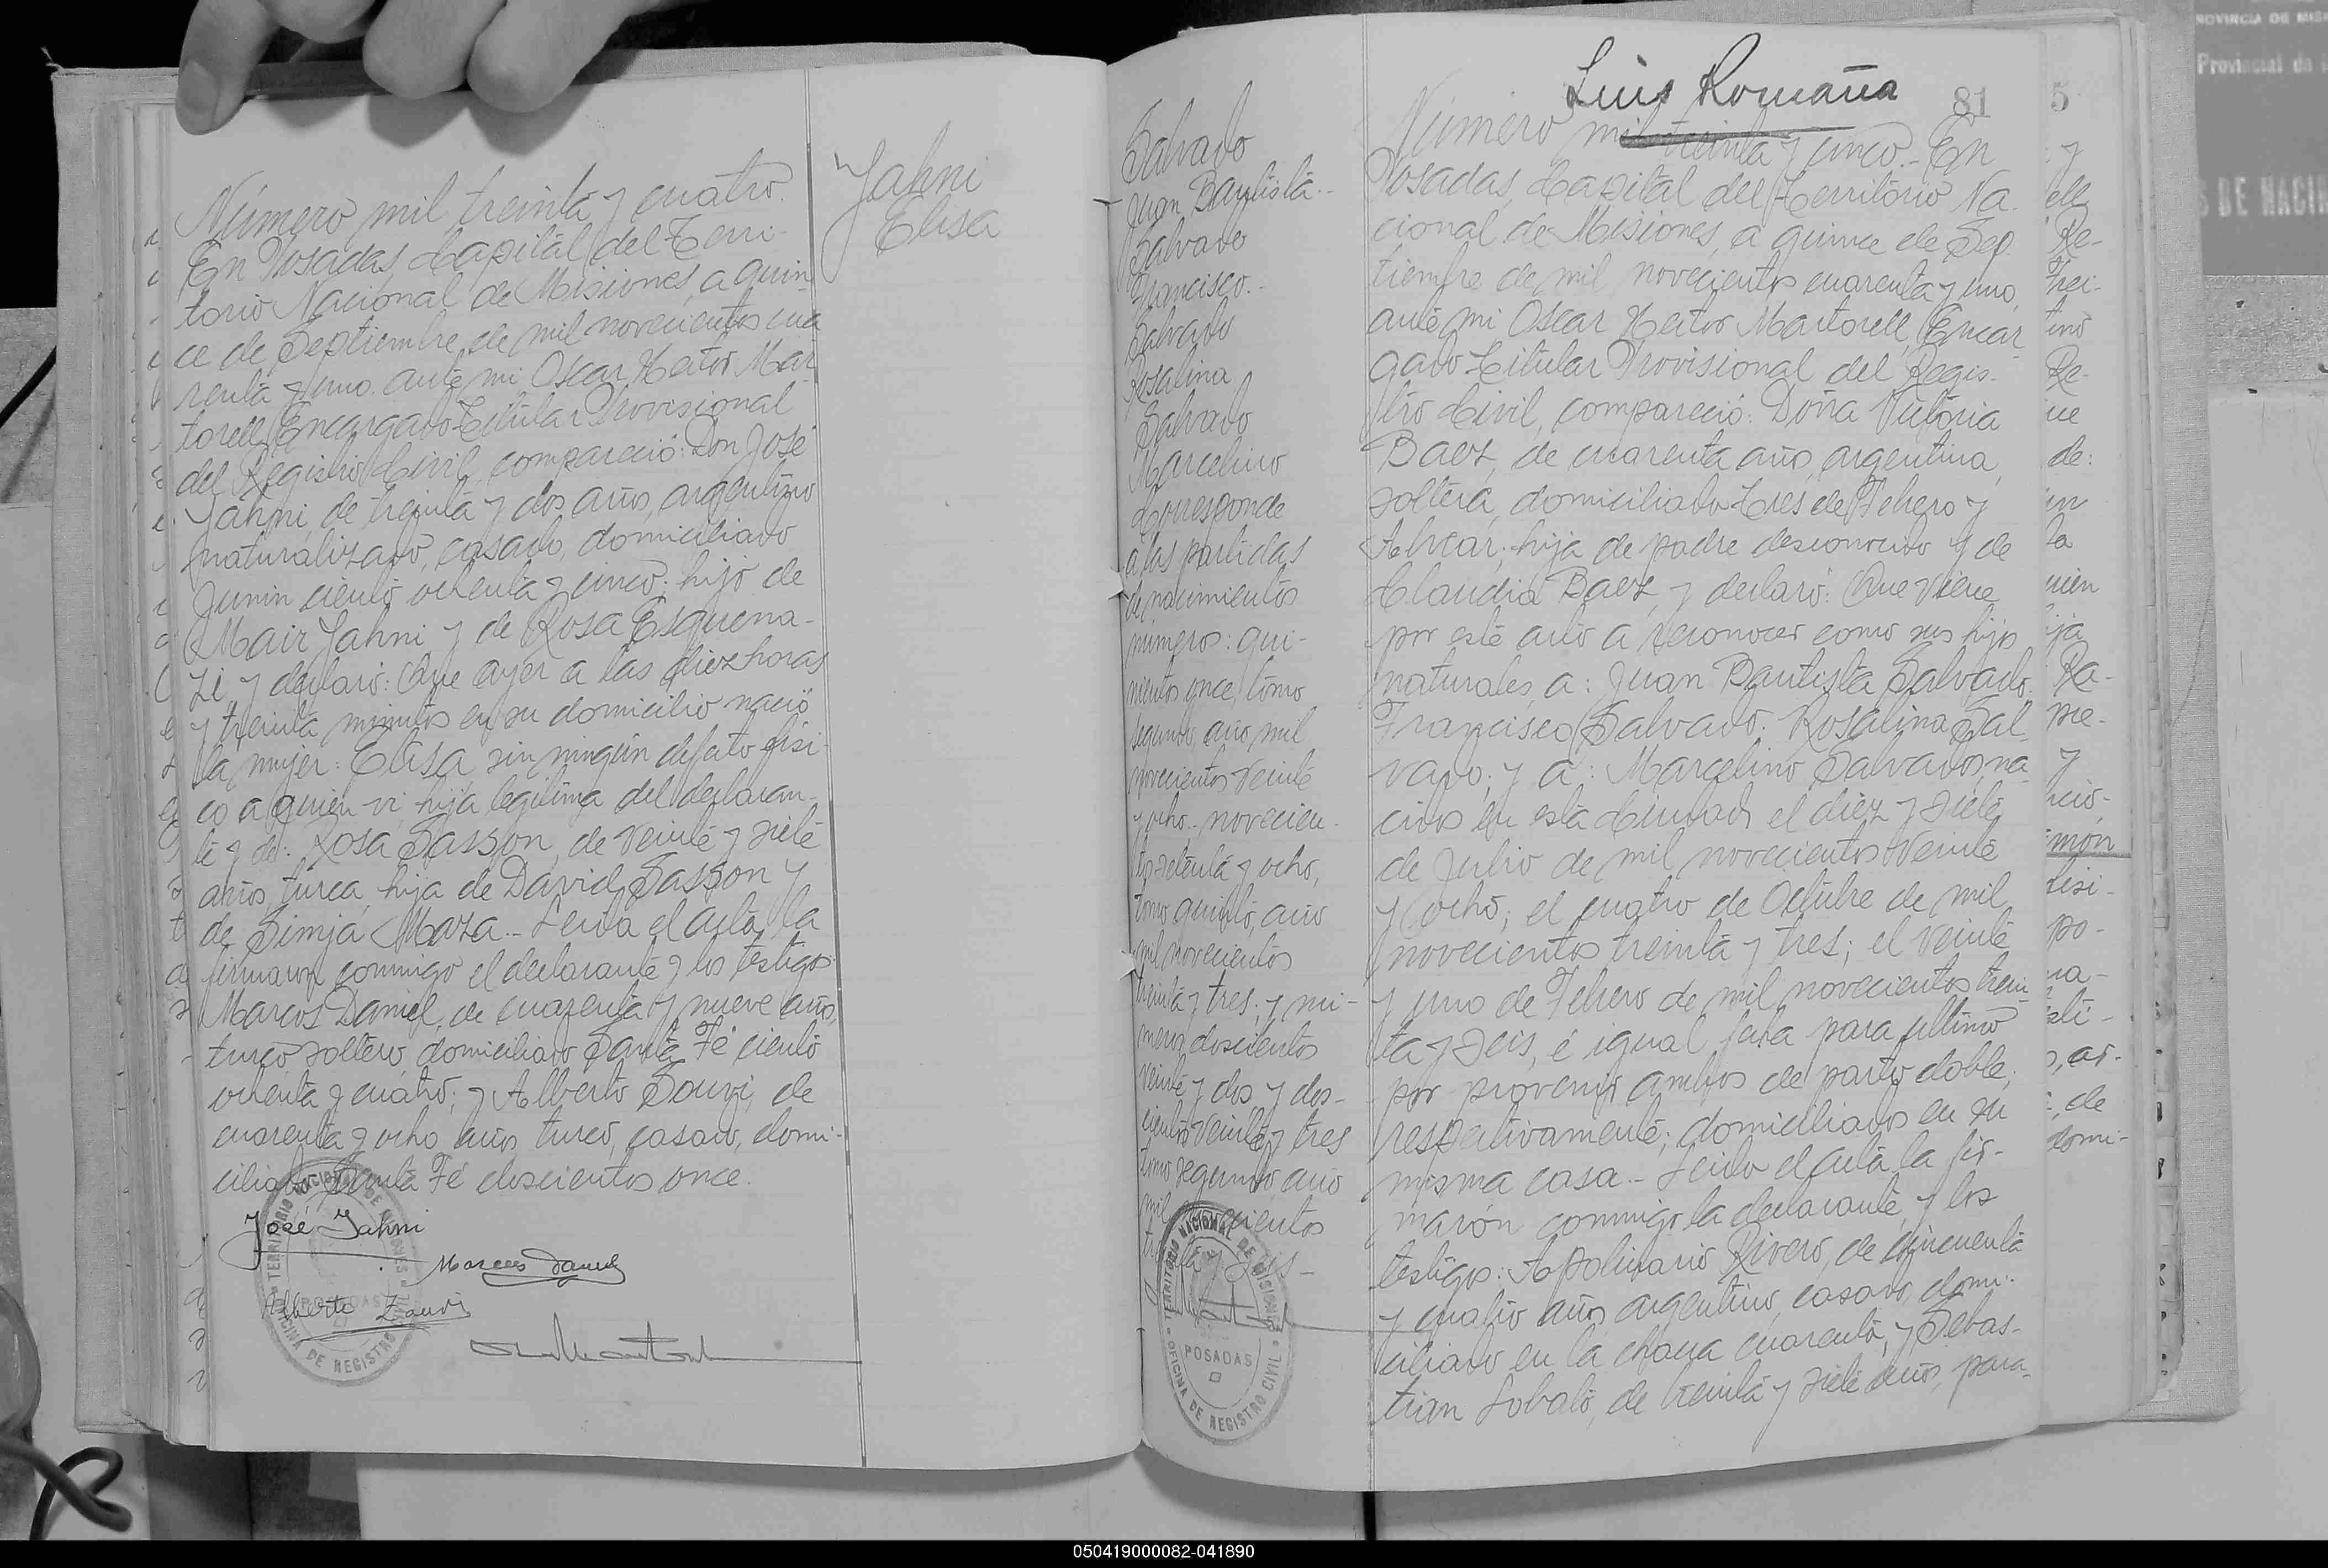 Número mil treinta y cuatro.
En Posadas, Capital del Terri-
torio Nacional de Misiones, a quin
ce de Septiembre de mil novecientos cua
renta y uno. ante mi Oscar Hector Mar
torell Encargado Titular Provisional
del Registro Civil, compareció: Don José
Jahni, de treinta y dos años, argentino
naturalizado, casado, domiciliado
Junin ciento ochenta y cinco; hijo de
Mair Jahni y de Rosa Esquena-
zi, y declaró: Que ayer a las diez horas
y treinta minutos en su domicilio nació
la mujer: Elisa, sin ningún defecto físi-
co a quien vi, hija legítima del declaran-
te y de: Rosa Sasson, de veinte y siete
años, turca, hija de David Sasson y
de Simja Maza.- Leida el acta, la
firmaron conmigo el declarante y los testigos
Marcos Daniel, de cuarenta y nueve años,
turco soltero, domiciliado Santa Fé ciento
ochenta y cuatro; y Alberto Souvi, de
cuarenta y ocho años, turco, casado, domi-
ciliado Santa Fé doscientos once.
José Jahni
Marcos Daniel
Alberto Zauvi
TERRITORIO NACIONAL DE MISIONES
POSADAS
OFICINA DE REGISTRO CIVIL
Jahni
Elisa
Salvado
Juan Bautista.-
Salvado
Francisco.-
Salvado
Rosalina
Salvado
Marcelino
Corresponde
a las partidas
de nacimientos
números: qui-
nientos once, tomo
segundo, año mil
novecientos veinte
y ocho.- novecien-
tos setenta y ocho,
tomo quinto, año
mil novecientos
treinta y tres; y nú-
meros doscientos
veinte y dos y dos-
cientos veinte y tres
tomo segundo año
mil novecientos
treinta y seis -
TERRITORIO NACIONAL DE MISIONES
POSADAS
OFICINA DE REGISTRO CIVIL
Luis Romaña
81
Número mil treinta y cinco.- En
Posadas, Capital del Territorio Na-
cional de Misiones, a quince de Sep-
tiembre de mil novecientos cuarenta y uno,
ante mi Oscar Hector Martorell, Encar
gado Titular Provisional del Regis-
tro Civil, compareció: Doña Victoria
Baez, de cuarenta años, argentina,
soltera, domiciliada Tres de Febrero y
Alvear; hija de padre desconocido y de
Claudia Baez, y declaró: Que viene
por este acto a reconocer como sus hijos
naturales, a: Juan Bautista Salvado.
Francisco Salvado: Rosalina Sal
vado; y a: Marcelino Salvado, na-
cidos en esta Ciudad, el diez y siete
de Julio de mil novecientos veinte
y ocho; el cuatro de Octubre de mil
novecientos treinta y tres; el veinte
y uno de Febrero de mil novecientos trein
ta y seis, é igual fecha para último
por provenir ambos de parto doble,
respectivamente; domiciliados en su
misma casa.- Leida el acta, la fir-
marón conmigo la declarante, y los
testigos: Apolinario Rivero, de cincuenta
y cuatro años, argentino, casado, domi-
ciliado en la chacra cuarenta; y Sebas-
tian Lobato, de treinta y siete años, para-
5